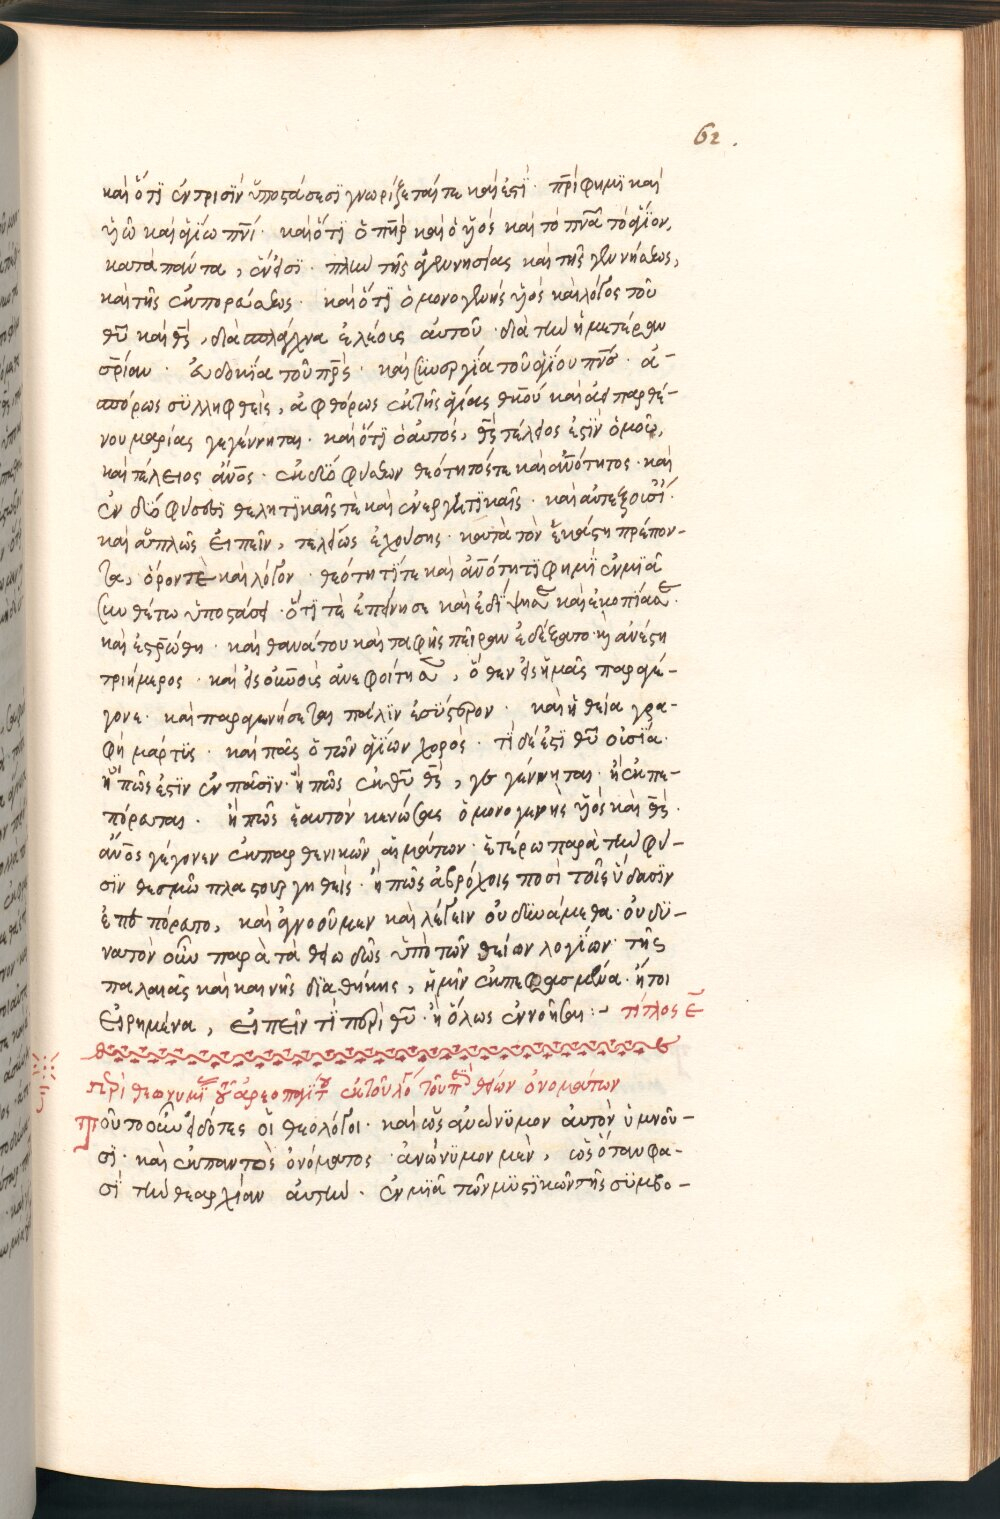 62.
καὶ ὅτι ἐν τρισὶν ὑποστάσεσι γνωρίζεταί τε καὶ ἐστί· π̅ρί φημι καὶ
ὑ̅ω καὶ ἁγίω π̅νί· καὶ ὅτι ὁ π̅ηρ καὶ ὁ ὑ̅ος καὶ τὸ π̅να τὸ ἅγιον,
κατὰ πάντα, ἕν εἰσι· πλὴν τῆς ἀγεννησίας καὶ τῆς γεννήσεως,
καὶ τῆς ἐκπορεύσεως· καὶ ὅτι ὁ μονογενὴς ὑ̅ος καὶ λόγος τοῦ
θ̅υ καὶ θ̅ς, διὰ σπλάγχνα ἐλέους αὐτοῦ· διὰ τὴν ἡμετέραν
σ̅ρίαν· εὐδοκία τοῦ π̅ρς· καὶ συνεργία τοῦ ἁγίου π̅νς· ἀ-
σπόρως συλληφθεὶς, ἀφθόρως ἐκ τῆς ἁγίας θ̅κου καὶ ἀειπαρθέ-
νου μαρίας γεγέννηται· καὶ ὅτι ὁ αὐτὸς, θ̅ς τέλειος ἐστὶν ὁμοῦ,
καὶ τέλειος ἄν̅ος· ἐκ δύο φύσεων θεότητός τε καὶ ἀν̅ότητος· καὶ
ἐν δύο φύσεσι θελητικαῖς τὲ καὶ ἐνεργητικαῖς· καὶ αὐτεξουσί·
καὶ ἁπλῶς εἰπεῖν, τελείως ἐχούσης· κατὰ τὸν ἑκάστη πρέπον-
τα, ὅρον τὲ καὶ λόγον· θεότητί τε καὶ ἀν̅ότητι φημὶ ἐν μιᾶ
συνθέτω ὑποστάσει· ὅτι τὲ ἐπείνησε καὶ ἐδίψησε καὶ ἐκοπίασε·
καὶ ἐσ̅ρώθη· καὶ θανάτου καὶ ταφῆς πεῖραν ἐδέξατο· καὶ ἀνέστη
τριήμερος· καὶ εἰς οὐ̅νους ἀνεφοίτησε, ὅθεν εἰς ἡμᾶς παραγέ-
γονε· καὶ παραγενήσεται πάλιν ἐσύστερον· καὶ ἡ θεία γρα-
φὴ μάρτυς· καὶ πᾶς ὁ τῶν ἁγίων χορός· τί δέ ἐστι θ̅υ οὐσία·
ἢ πῶς ἐστὶν ἐν πᾶσιν· ἢ πῶς ἐκ θ̅υ θ̅ς, γεγέννηται· ἢ ἐκπε-
πόρευται· ἢ πῶς ἑαυτὸν κενώσας ὁ μονογενὴς ὑ̅ος καὶ θ̅ς·
ἄν̅ος γέγονεν ἐκ παρθενικῶν αἱμάτων· ἑτέρω παρὰ τὴν φύ-
σιν θεσμῶ πλαστουργηθείς· ἢ πῶς ἀβρόχοις ποσὶ τοῖς ὕδασιν
ἐπεπόρευτο, καὶ ἀγνοοῦμεν καὶ λέγειν οὐ δυνάμεθα· οὐ δυ-
νατὸν οὖν παρὰ τὰ θειωδῶς ὑπὸ τῶν θείων λογίων τῆς
παλαιᾶς καὶ καινῆς διαθήκης, ἡμῖν ἐκπεφασμένα· ἤτοι
εἰρημένα, εἰπεῖν τὶ περὶ θ̅υ· ἢ ὅλως ἐννοῆσαι :- τίτλος ε̅
περὶ θεωνυμι τοῦ ἀρεοπαγίτ ἐκ τοῦ λό τοῦ περὶ θείων ὀνομάτων
Τοῦτο οὖν εἰδότες οἱ θεολόγοι· καὶ ὡς ἀνώνυμον αὐτὸν ὑμνοῦ-
σι· καὶ ἐκ παντὸς ὀνόματος· ἀνώνυμον μὲν, ὡς ὅταν φα-
σὶ τὴν θεαρχίαν αὐτὴν· ἐν μιᾶ τῶν μυστικῶν τῆς συμβο-